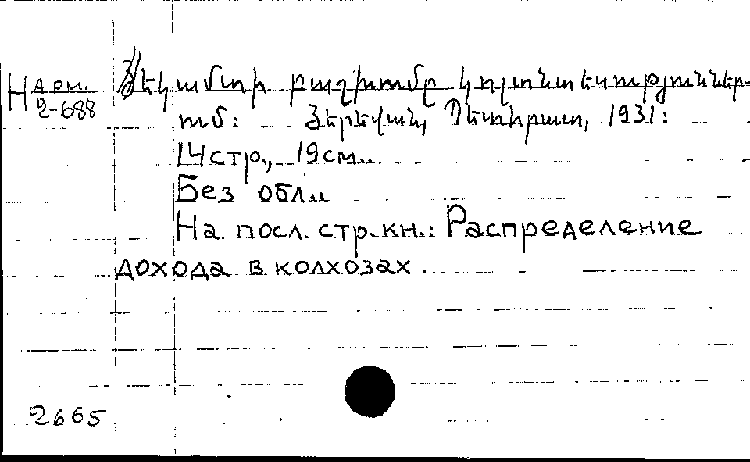 Н арм.
2-688
Յեկամտի բաշխումը կոլտնտեսություններ-
ում: Յերեվան, Պետհրատ, 1931:
14 стр., 19 см.
Без обл.
На посл. стр. кн.: Распределение
дохода в колхозах.
2665